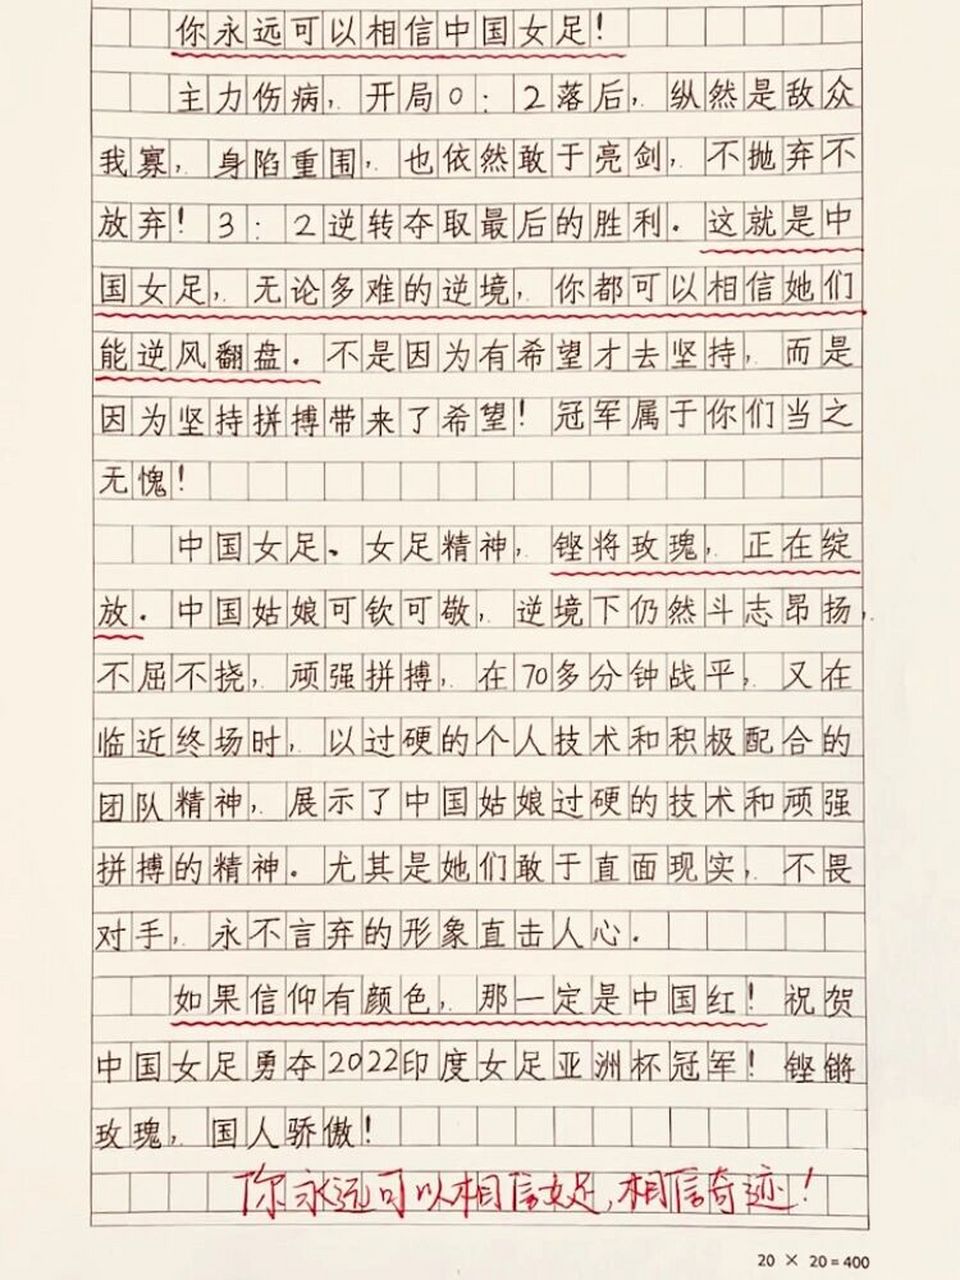 你永远可以相信中国女足！
主力伤病，开局0：2落后，纵然是敌众
我寡，身陷重围，也依然敢于亮剑，不抛弃不
放弃！3：2逆转夺取最后的胜利。这就是中
国女足，无论多难的逆境，你都可以相信她们
能逆风翻盘。不是因为有希望才去坚持，而是
因为坚持拼搏带来了希望！冠军属于你们当之
无愧！
中国女足。女足精神，铿将玫瑰，正在绽
放。中国姑娘可钦可敬，逆境下仍然斗志昂扬，
不屈不挠，顽强拼搏，在70多分钟战平，又在
临近终场时，以过硬的个人技术和积极配合的
团队精神，展示了中国姑娘过硬的技术和顽强
拼搏的精神。尤其是她们敢于直面现实，不畏
对手，永不言弃的形象直击人心。
如果信仰有颜色，那一定是中国红！祝贺
中国女足勇夺2022印度女足亚洲杯冠军！铿锵
玫瑰，国人骄傲！
你永远可以相信女足，相信奇迹！
20 × 20=400